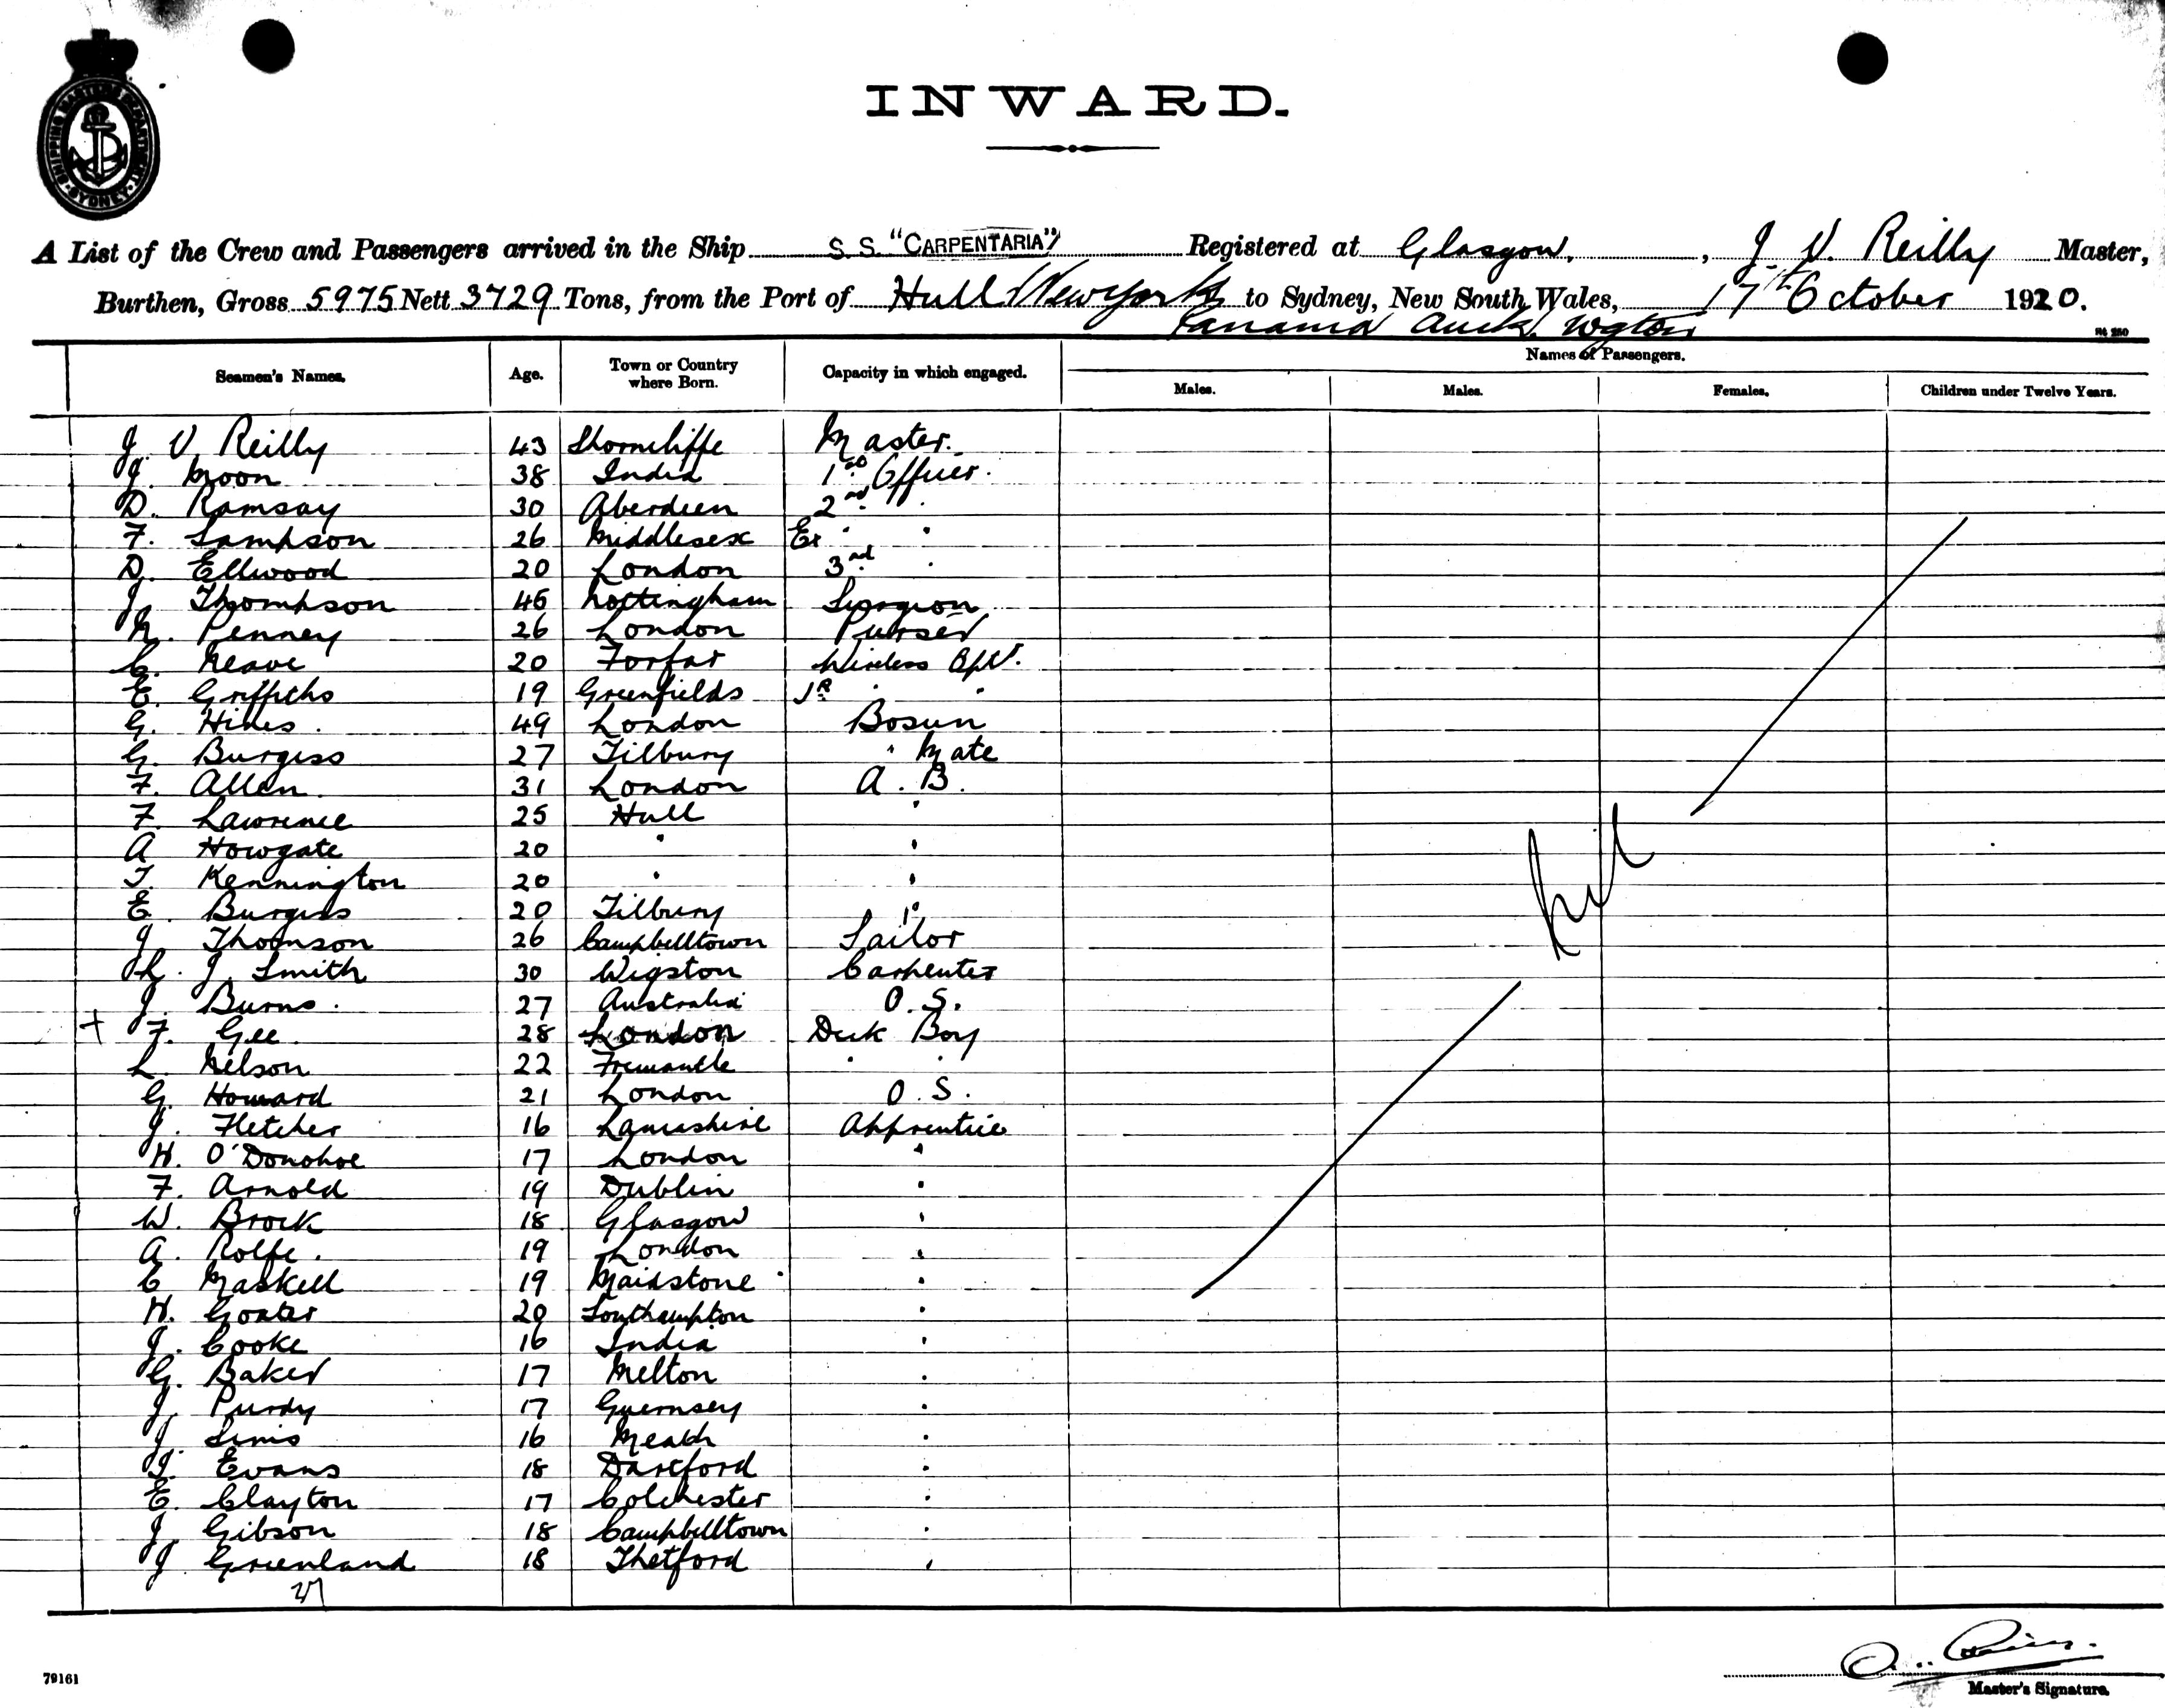 SHIPPING MASTERS DEPARTMENT SYDNEY
INWARD.
A List of the Crew and Passengers arrived in the Ship S.S. "CARPENTARIA" Registered at Glasgow, J. V. Reilly Master,
Burthen, Gross 5975 Nett 3729 Tons, from the Port of Hull New York to Sydney, New South Wales, 17th October 1920.
Panama Auck. Wgton
Seamen's Names. Age. Town or Country where Born. Capacity in which engaged. Names of Passengers.
Males. Males. Females. Children under Twelve Years.
J. V. Reilly 43 Shorncliffe Master.
J. Moon 38 India 1st Officer.
D. Ramsay 30 Aberdeen 2nd "
F. Sampson 26 Middlesex Ex " "
D. Ellwood 20 London 3rd "
J. Thompson 46 Nottingham Surgeon
N. Penney 26 London Purser
C. Neave 20 Forfar Wireless Opr.
E. Griffiths 19 Greenfields Jr " "
G. Hines. 49 London Bosun
G. Burgess 27 Tilbury " Mate
F. Allen. 31 London A. B.
F. Lawrence 25 Hull "
A Howgate 20 " "
T. Kennington 20 " "
E. Burgess 20 Tilbury "
J. Thomson 26 Campbelltown Sailor
L. J. Smith 30 Wigston Carpenter
J. Burns. 27 Australia O. S.
+ F. Gee. 28 London Deck Boy
L. Nelson 22 Fremantle " "
G. Howard 21 London O. S.
J. Fletcher 16 Lancashire Apprentice
H. O'Donohoe 17 London "
F. Arnold 19 Dublin "
W. Brock 18 Glasgow "
A. Rolfe. 19 London "
C Maskell 19 Maidstone "
H. Goater 20 Southampton "
J. Cooke 16 India "
G. Baker 17 Melton "
J. Purdy 17 Guernsey "
J. Sims 16 "
J. Evans 18 Dartford "
E. Clayton 17 Colchester "
J. Gibson 18 Campbelltown "
J Greenland 18 Thetford "
Nil
79161
Master's Signature.